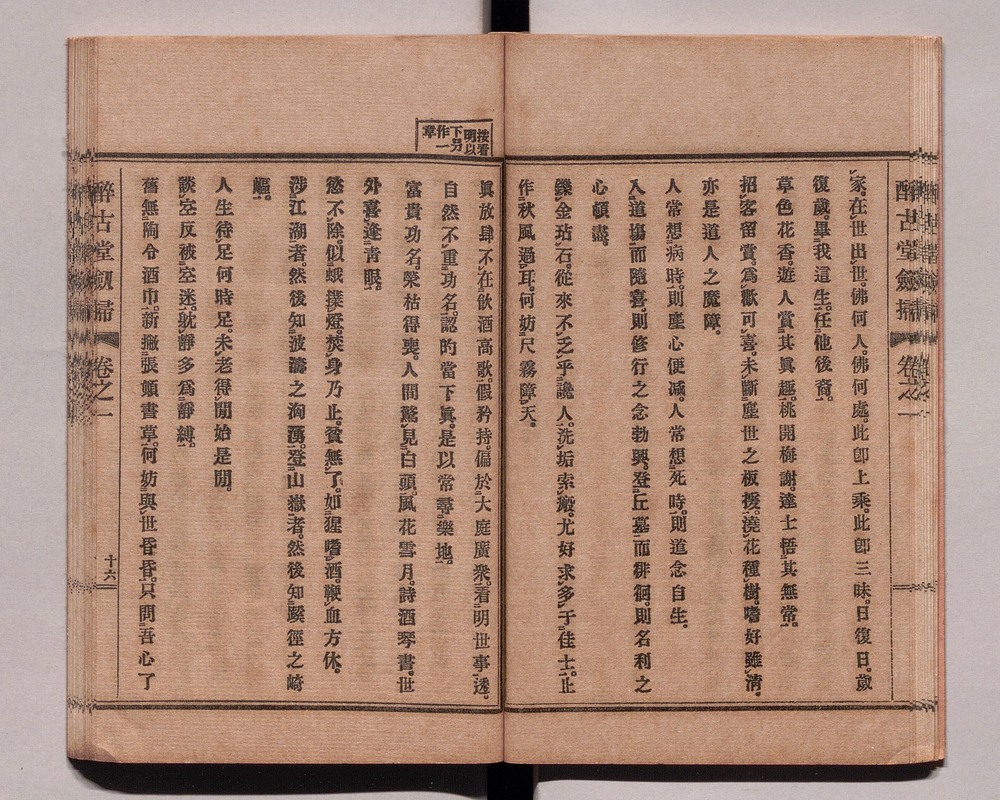 醉古堂劔掃 卷之一
家。在世出世。佛何人。佛何處。此卽上乘。此卽三昧。日復日。歲
復歲。畢我這生。任他後裔。
草色花香。遊人賞其眞趣。桃開梅謝。達士悟其無常。
招客留賞。爲歡可喜。未斷塵世之板援。澆花種樹。嗜好雖淸。
亦是道人之魔障。
人常想病時。則塵心便減。人常想死時。則道念自生。
入道塲而隨喜。則修行之念勃興。登丘墓而徘徊。則名利之
心頓盡。
鑠金玷石。從來不乏乎讒人。洗垢索瘢。尤好求多于佳士。止
作秋風過耳。何妨尺霧障天。
按看
明以
下另
作一
章
眞放肆不在飮酒高歌。假矜持。偏於大庭廣衆。看明世事透。
自然不重功名。認的當下眞。是以常尋樂地。
富貴功名。榮枯得喪。人間驚見白頭。風花雪月。詩酒琴書。世
外喜逢靑眼。
慾不除。似蛾撲燈。焚身乃止。貪無了。如猩嗜酒。鞭血方休。
涉江湖者。然後知波濤之洶湧。登山嶽者。然後知蹊徑之崎
嶇。
人生待足何時足。未老得閒始是閒。
談空反被空迷。躭靜多爲靜縛。
舊無陶令酒巾。新撇張顚書草。何妨與世昏昏。只問吾心了
醉古堂劔掃 卷之一 十六